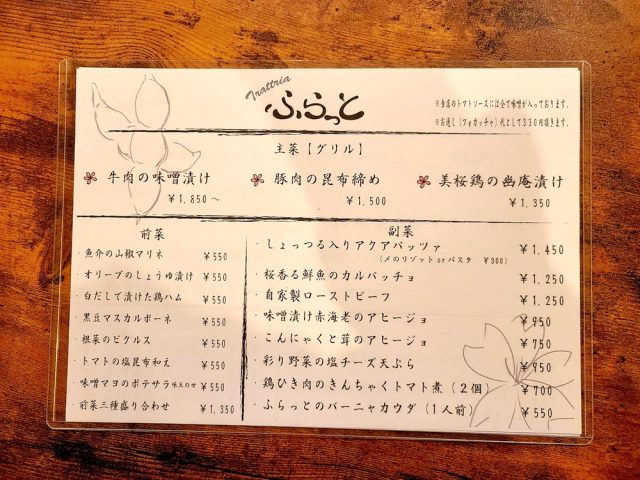 Trattria
ふらっと
※当店のトマトソースには全て味噌が入っております。
※お通し(フォカッチャ)代として330円頂きます。
主菜【グリル】
牛肉の味噌漬け
¥1.850～
豚肉の昆布締め
¥1.500
美桜鶏の幽庵漬け
¥1.350
前菜
魚介の山椒マリネ ¥550
オリーブのしょうゆ漬け ¥550
白だしで漬けた鶏ハム ¥550
黒豆マスカルポーネ ¥550
根菜のピクルス ¥550
トマトの塩昆布和え ¥550
味噌マヨのポテサラ味玉のせ ¥550
前菜三種盛り合わせ ¥1,350
副菜
しょっつる入りアクアパッツァ ¥1.450
(〆のリゾットorパスタ ¥300)
桜香る鮮魚のカルパッチョ ¥1.250
自家製ローストビーフ ¥1.250
味噌漬け赤海老のアヒージョ ¥950
こんにゃくと茸のアヒージョ ¥750
彩り野菜の塩チーズ天ぷら ¥950
鶏ひき肉のきんちゃくトマト煮(2個) ¥700
ふらっとのバーニャカウダ(1人前) ¥550